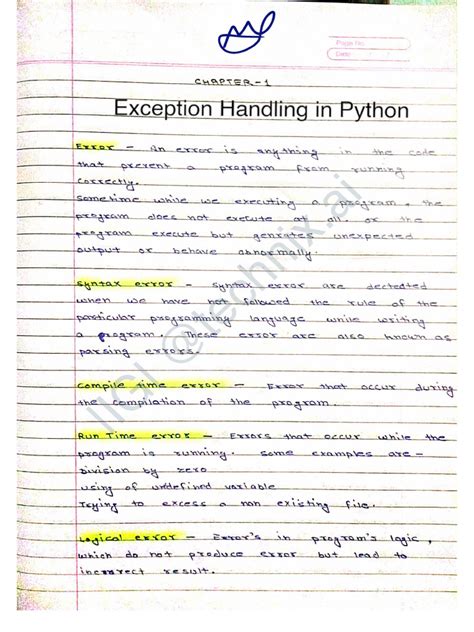 Page No.
Date
CHAPTER-1
Exception Handling in Python
Error - An error is anything in the code
that prevent a program from running
correctly.
sometime while we executing a program, the
program does not execute at all. or the
program execute but genrates unexpected
output or behave abnormally.
Syntax error - syntax error are dectected
when we have not followed the rule of the
particular programming language while writing
a program. These error are also known as
parsing errors.
Compile time error - Error that occur during
the compilation of the program.
Run Time error - Errors that occur while the
program is running. some examples are -
Division by zero
using of undefined variable
Trying to excess a non existing file.
Logical error - Error's in program's logic,
which do not produce error but lead to
incorrect result.
@technix.ai